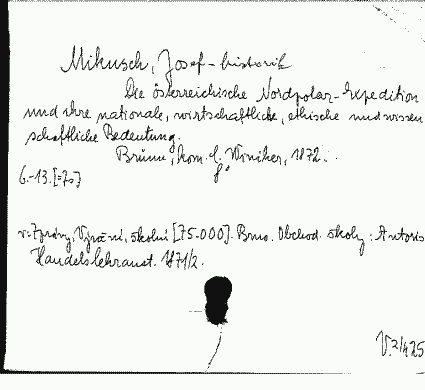 Mikusch, Josef - historik
Die österreichische Nordpolar-Expedition
und ihre nationale, wirtschaftliche, ethische und wissen
schaftliche Bedeutung.
Brünn, Kom. C. Winiker, 1872.
8°
6.-13. [=7s]
v: Zprávy, Výroční, školní [75.000]. Brno. Obchod. školy:
Handelslehranst. 1871/2.